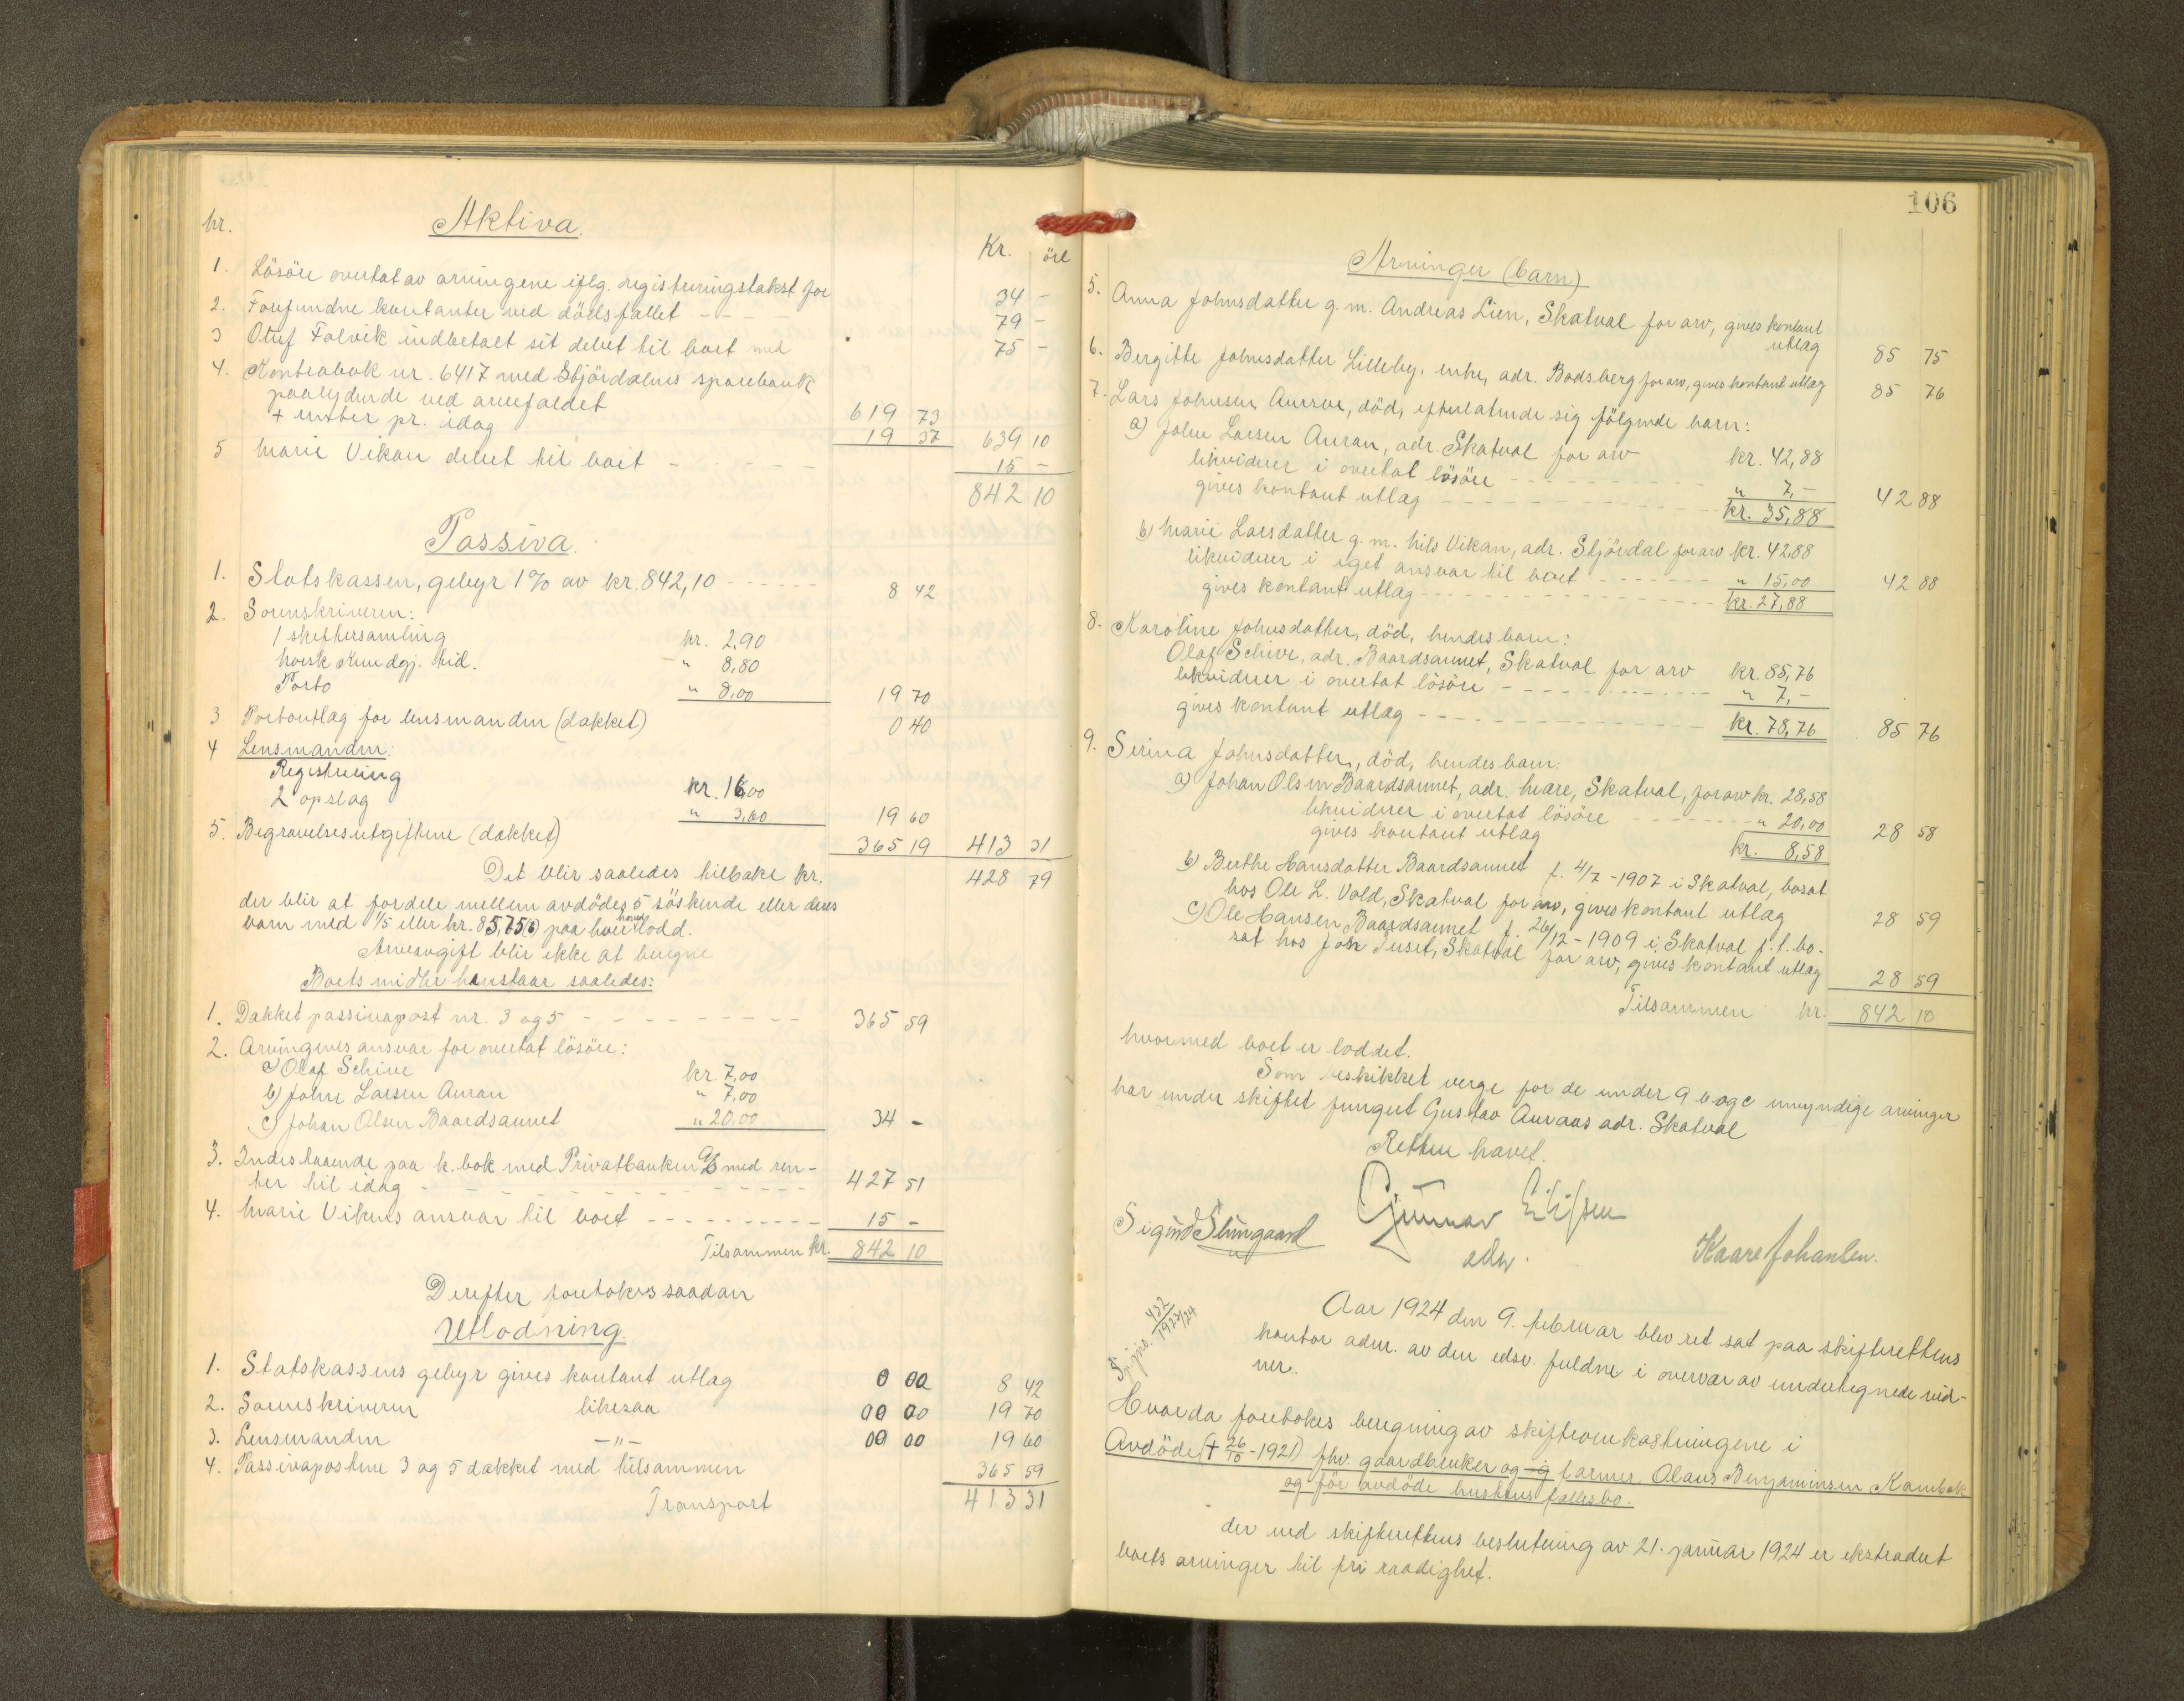 nr. Aktiva.
Kr. öre
1. Lösöre overtat av arvingene iflg. registreringstakst for 34 -
2. Forefundne kontanter ved dödsfallet - - - - 79 -
3 Oluf Folvik indbetalt sit debet til boet med 75 -
4. Kontrabok nr. 6417 med Stjördalens sparebank
paalydende ved arvefaldet 619 73
+ renter pr. idag 19 37 639 10
5 Marie Vikan debet til boet - - - - - 15 -
842 10
Passiva.
1. Statskassen, gebyr 1% av kr. 842,10 - - - - - - 8 42
2. Sorenskriveren:
1 skiftersamling kr. 2,90
Norsk Kundgj. tid. " 8,80
Porto " 8,00 19 70
3 Portoutlag for lensmanden (dækket) 0 40
4 Lensmanden:
Registrering kr. 16,00
2 opslag " 3,60 19 60
5. Begravelsesutgiftene (dækket) 365 19 413 31
Det blir saaledes tilbake kr. 428 79
der blir at fordele mellem avdödes 5 söskende eller deres
barn med 1/5 eller kr. 85,75(6) paa hver hovedlodd.
Arveavgift blir ikke at beregne
Boets midler henstaar saaledes:
1. Dækket passivapost nr. 3 og 5 - - - - - - - - - 365 59
2. Arvingenes ansvar for overtat lösöre:
a) Olaf Schive kr. 7,00
b) John Larsen Auran " 7,00
c) Johan Olsen Baardsaunet " 20,00 34 -
3. Indestaaende paa k. bok med Privatbanken a/s med ren-
ter til idag - - - - - - - - - - - - - 427 51
4. Marie Vikans ansvar til boet - - - - - - - - - - 15 -
Tilsammen kr. 842 10
Derefter foretokes saadan
Utlodning.
1. Statskassens gebyr gives kontant utlag 0 00 8 42
2. Sorenskriveren likesaa 00 00 19 70
3. Lensmanden -"- 00 00 19 60
4. Passivapostene 3 og 5 dækket med tilsammen 365 59
Transport 413 31
106
Arvinger (barn)
5. Anna Johnsdatter g. m. Andreas Lien, Skatval for arv, gives kontant
utlag 85 75
6. Bergitte Johnsdatter Lilleby, enke, adr. Bodsberg for arv, gives kontant utlag 85 76
7. Lars Johnsen Auran, död, efterlatende sig fölgende barn:
a) John Larsen Auran, adr. Skatval for arv kr. 42,88
likviderer i overtat lösöre - - - - - - - - " 7,-
gives kontant utlag - - - - - - - - - - kr. 35,88 42 88
b) Marie Larsdatter g. m. Nils Vikan, adr. Stjördal for arv kr. 42,88
likviderer i eget ansvar til boet - - - - - - " 15,00
gives kontant utlag - - - - - - - - - - - kr. 27,88 42 88
8. Karoline Johnsdatter, död, hendes barn:
Olaf Schive, adr. Baardsaunet, Skatval for arv kr. 85,76
likviderer i overtat lösöre - - - - - - - - - " 7,-
gives kontant utlag - - - - - - - - - - - kr. 78,76 85 76
9. Serina Johnsdatter, död, hendes barn:
a) Johan Olsen Baardsaunet, adr. Skatval, for arv kr. 28,58
likviderer i overtat lösöre - - - - - - - " 20,00
gives kontant utlag kr. 8,58 28 58
b) Berthe Hansdatter Baardsaunet f. 4/7 - 1907 i Skatval, bosat
hos Ole L. Vold, Skatval for arv, gives kontant utlag 28 59
c) Ole Hansen Baardsaunet f. 26/12 - 1909 i Skatval f. t. bo-
sat hos Skatval for arv, gives kontant utlag 28 59
Tilsammen kr. 842 10
hvormed boet er loddet.
Som beskikket verge for de under 9 b og c umyndige arvinger
har under skiftet fungert Gustav Auraas adr. Skatval
Retten hævet.
Gunnar
edsv.
Sigurd Kaare Johansen.
432
1923/24
Aar 1924 den 9. februar blev ret sat paa skifterettens
kontor adm. av den edsv. fuldm. i overvær av undertegnede vid-
ner.
Hvorda foretokes beregning av skifteomkostningene i
Avdöde († 26/10 - 1921) fhv. gaardbruker og Olaus Benjaminsen
og för avdöde hustrus fællesbo.
der ved skifterettens beslutning av 21. januar 1924 er ekstradert
boets arvinger til fri raadighet.